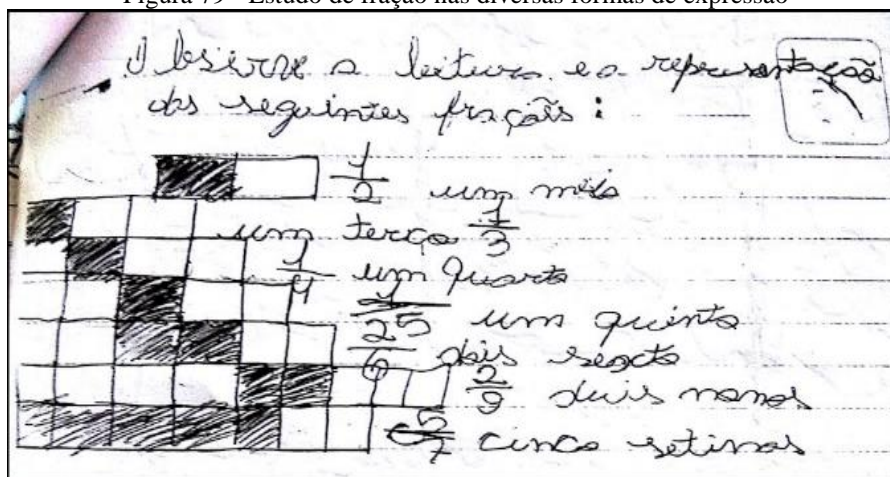 Figura 79 - Estudo de fração nas diversas formas de expressão
Observe a leitura e a representação
das seguintes frações:
1/2 um meio
um terço 1/3
1/4 um quarto
1/5 um quinto
2/6 dois sexto
2/9 dois nonos
5/7 cinco setimos